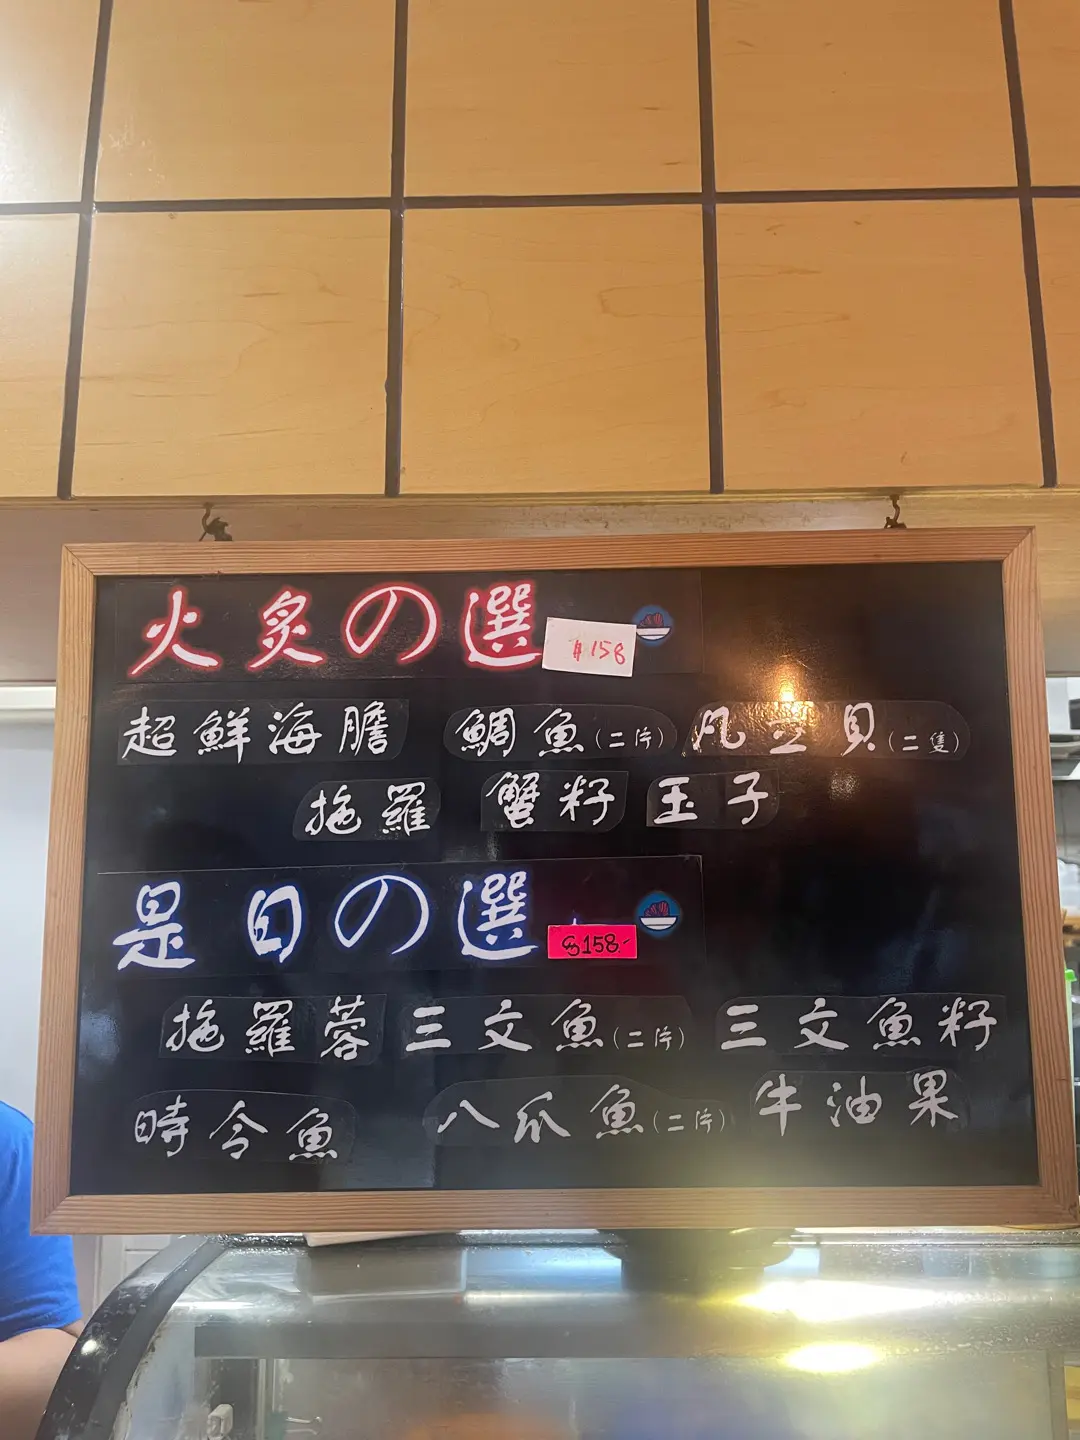 火炙の選 $158
超鮮海膽 鯛魚(二片) 凡立貝(二隻)
拖羅 蟹籽 玉子
是日の選 $158.-
拖羅蓉 三文魚(二片) 三文魚籽
時令魚 八爪魚(二片) 牛油果